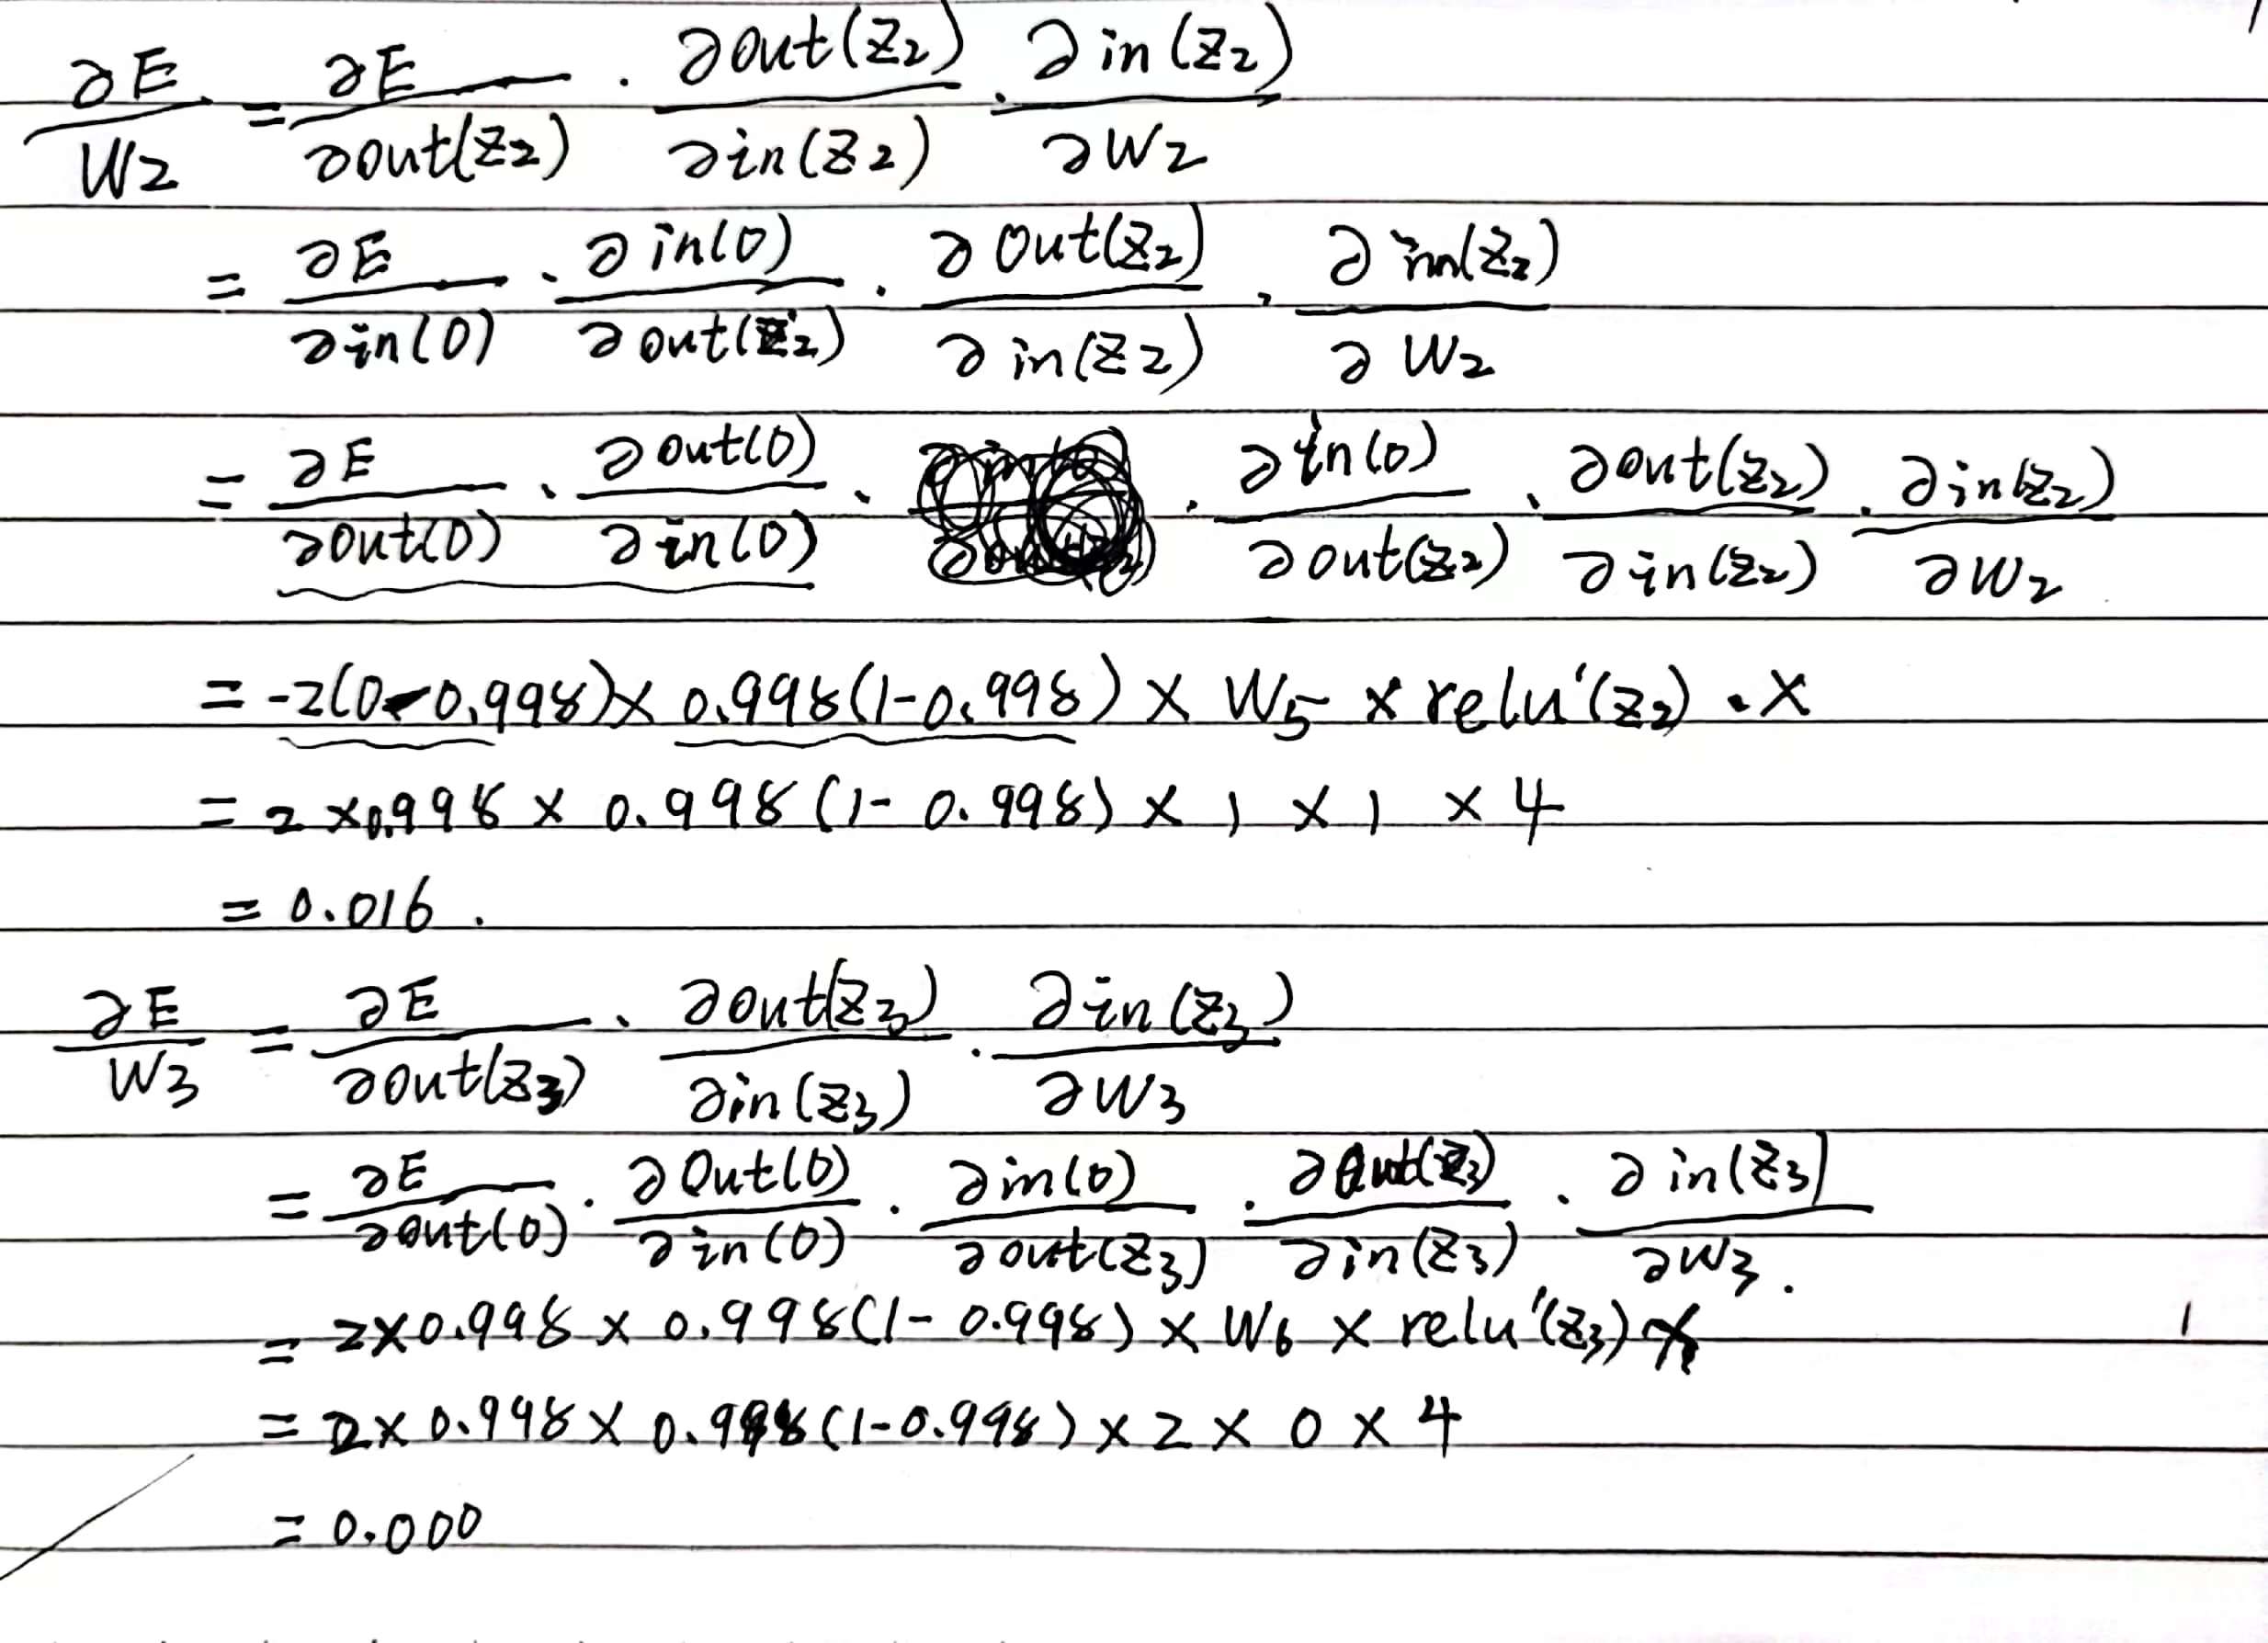 ∂E/W2 = ∂E/∂out(z2) · ∂out(z2)/∂in(z2) · ∂in(z2)/∂W2
= ∂E/∂in(0) · ∂in(0)/∂out(z2) · ∂out(z2)/∂in(z2) · ∂in(z2)/∂W2
= ∂E/∂out(0) · ∂out(0)/∂in(0) · · ∂in(0)/∂out(z2) · ∂out(z2)/∂in(z2) · ∂in(z2)/∂W2
= -2(0-0.998) × 0.998(1-0.998) × W5 × relu'(z2) · x
= 2 × 0.998 × 0.998(1-0.998) × 1 × 1 × 4
= 0.016.
∂E/W3 = ∂E/∂out(z3) · ∂out(z3)/∂in(z3) · ∂in(z3)/∂W3
= ∂E/∂out(0) · ∂out(0)/∂in(0) · ∂in(0)/∂out(z3) · ∂out(z3)/∂in(z3) · ∂in(z3)/∂W3.
= 2×0.998 × 0.998(1-0.998) × W6 × relu'(z3) x
= 2×0.998 × 0.998(1-0.998) × 2 × 0 × 4
= 0.000